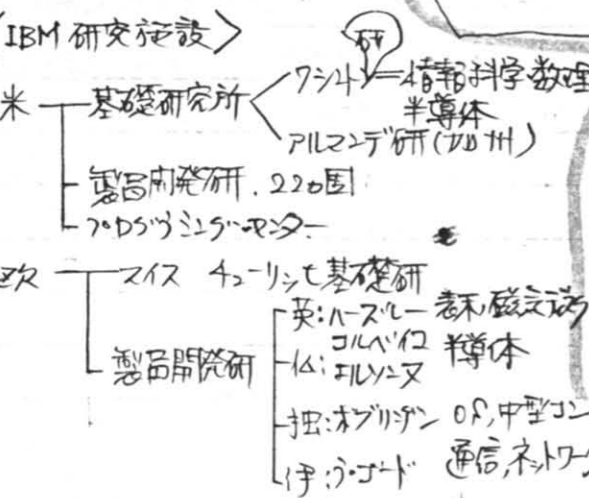 〈IBM 研究施設〉
研
米 基礎研究所 ワシントン 情報科学・数理
半導体
アルマンデ研(加州)
製品開発研. 220
プログラミング・センター
欧 スイス チューリッヒ基礎研
英:ハーズレー 表示, 磁気
製品開発研
仏:コルベイユ 半導体
エルソンヌ
独:オブリンゲン OS, 中型コン
伊: 通信, ネットワーク